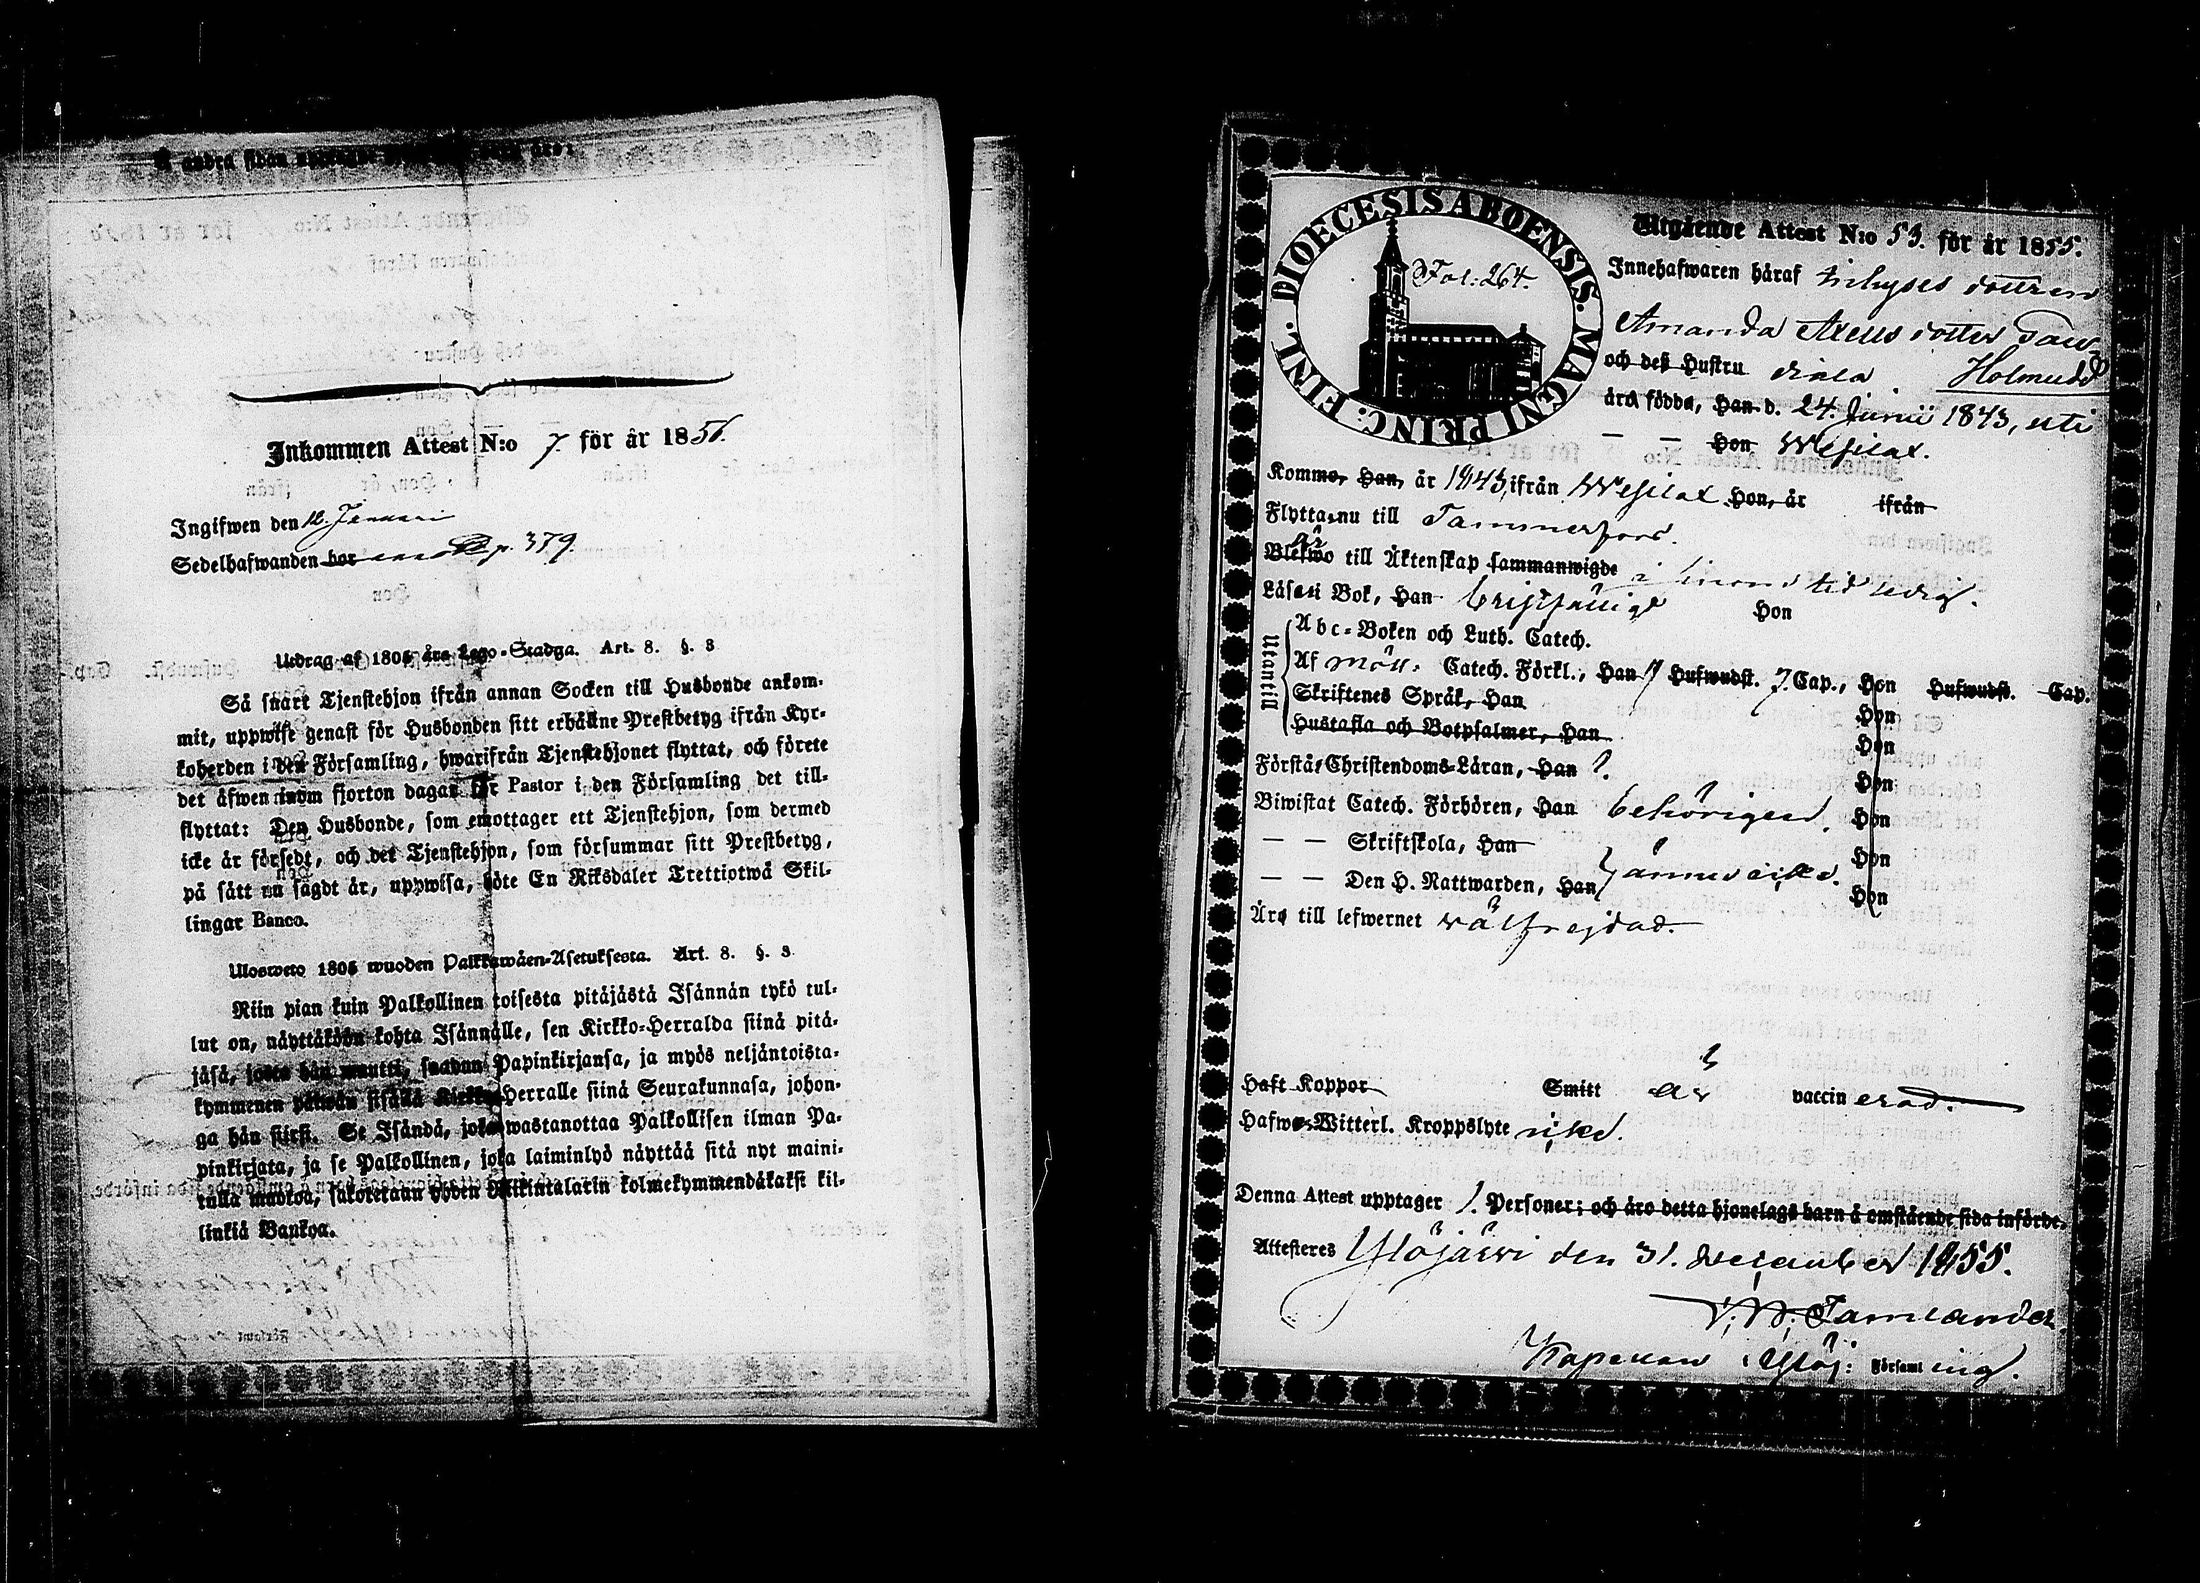 Å andra sidan
Inkommen Attest N:o 7. för år 1856.
Ingifwen den 12. Januari
Sedelhafwanden har p. 379.
Utdrag af 1805 års Lego-Stadga. Art. 8. §. 3
Så snart Tjenstehjon ifrån annan Socken till Husbonde ankom-
mit, uppwise genast för Husbonden sitt erhållne Prestbetyg ifrån Kyr-
koherden i den Församling, hwarifrån Tjenstehjonet flyttat, och förete
det äfwen inom fjorton dagar för Pastor i den Församling det till-
flyttat: Den Husbonde, som emottager ett Tjenstehjon, som dermed
icke är försedt, och det Tjenstehjon, som försummar sitt Prestbetyg,
på sätt nu sagdt är, uppwisa, böte En Riksdaler Trettiotwå Skil-
lingar Banco.
Ulosweto 1805 wuoden Palkkawäen-Asetuksesta. Art. 8. §. 3.
Niin pian kuin Palkollinen toisesta pitäjästä Isännän tykö tul-
lut on, näyttäköön kohta Isännälle, sen Kirkko-Herralda siinä pitä-
jäsä, josta hän muutti, saadun Papinkirjansa, ja myös neljäntoista-
kymmenen päiwän sisällä Kirkko-Herralle siinä Seurakunnasa, johon-
ga hän siirsi. Se Isändä, joka wastanottaa Palkollisen ilman Pa-
pinkirjata, ja se Palkollinen, joka laiminlyö näyttää sitä nyt maini-
tulla muodoa, sakotetaan yhden Riikintalarin kolmekymmendäkaksi kil-
linkiä Bankoa.
DIOECESIS ABOENSIS. MAGNI PRINC: FINL.
Fol: 264.
Utgående Attest N:o 53. för år 1855.
Innehafwaren häraf inhyses dottren
Amanda Axels dotter
och deß Hustru Holmudd
äro födda, Han d. 24. Junii 1843, uti
— — Hon Wesilax.
Komma, Han, år 1843, ifrån Wesilax Hon, år ifrån
Flytta nu till Tammerfors.
är
Blefwo till Äktenskap sammanwigde i tid ledig.
Läsa i Bok, Han Hon
Utantill
Abc-Boken och Luth. Catech.
Af Möll: Catech. Förkl., Han Hufwudst. 7. Cap., Hon Hufwudst. Cap.
Skriftenes Språk, Han Hon
Hustafla och Botpsalmer, Han Hon
Förstå Christendoms-Läran, Han Hon
Biwistat Catech. Förhören, Han behörigen. Hon
— — Skriftskola, Han Hon
— — Den H. Nattwarden, Han ännu icke. Hon
Äro till lefwernet wälfrejdad.
Haft Koppor Smitt är vaccin erad.
Hafwa Witterl. Kroppslyte icke.
Denna Attest upptager 1. Personer; och äro detta hjonelags barn å omstående sida införde.
Attesteres Ylöjärwi den 31. December 1855.
Tamlander.
Kapellan i Ylöj: Församl ing.